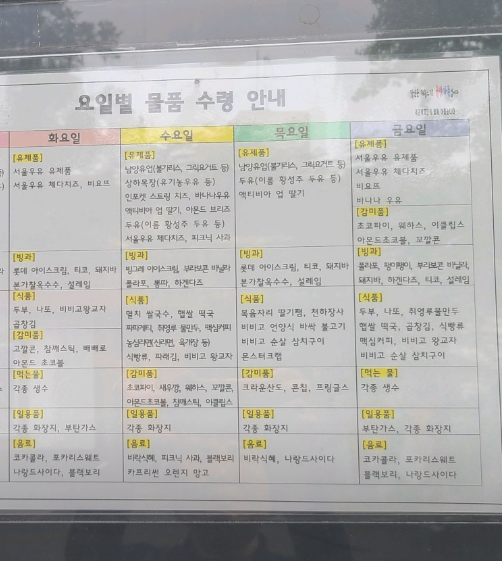 요일별 물품 수령 안내
화요일
[유제품]
서울우유 유제품
서울우유 체다치즈, 비요뜨
[빙과]
롯데 아이스크림, 티코, 돼지바
본가찰옥수수, 설레임
[식품]
두부, 나또, 비비고왕교자
곱창김
[감미품]
고깔콘, 참깨스틱, 빼빼로
아몬드 초코볼
[먹는물]
각종 생수
[일용품]
각종 화장지, 부탄가스
[음료]
코카콜라, 포카리스웨트
나랑드사이다, 블랙보리
수요일
[유제품]
남양유업(불가리스, 그릭요거트 등)
상하목장(유기농우유 등)
인포켓 스트링 치즈, 바나나우유
액티비아 업 딸기, 아몬드 브리즈
두유(이롬 황성주 두유 등)
서울우유 체다치즈, 피크닉 사과
[빙과]
빙그레 아이스크림, 부라보콘 바닐라
폴라포, 뽕따, 하겐다즈
[식품]
멸치 쌀국수, 햅쌀 떡국
파파게티, 취영루 물만두, 맥심커피
농심라면(신라면, 육개장 등)
식빵류, 파래김, 비비고 왕교자
[감미품]
초코파이, 새우깡, 웨하스, 꼬깔콘,
아몬드초코볼, 참깨스틱, 이클립스
[일용품]
각종 화장지
[음료]
비락식혜, 피크닉 사과, 블랙보리
카프리썬 오렌지 망고
목요일
[유제품]
남양유업(불가리스, 그릭요거트 등)
두유(이롬 황성주 두유 등)
액티비아 업 딸기
[빙과]
롯데 아이스크림, 티코, 돼지바
본가찰옥수수, 설레임
[식품]
복음자리 딸기잼, 천하장사
비비고 언양식 바싹 불고기
비비고 순살 삼치구이
몬스터크램
[감미품]
크라운산도, 콘칩, 프링글스
[일용품]
각종 화장지
[음료]
비락식혜, 나랑드사이다
금요일
[유제품]
서울우유 유제품
서울우유 체다치즈
비요뜨
바나나 우유
[감미품]
초코파이, 웨하스, 이클립스
아몬드초코볼, 꼬깔콘
[빙과]
폴라포, 탱크탱이, 부라보콘 바닐라,
돼지바, 하겐다즈, 티코, 설레임
[식품]
두부, 나또, 취영루물만두
햅쌀 떡국, 곱창김, 식빵류
맥심커피, 비비고 왕교자
비비고 순살 삼치구이
[먹는 물]
각종 생수
[일용품]
부탄가스, 각종 화장지
[음료]
코카콜라, 포카리스웨트
블랙보리, 나랑드사이다